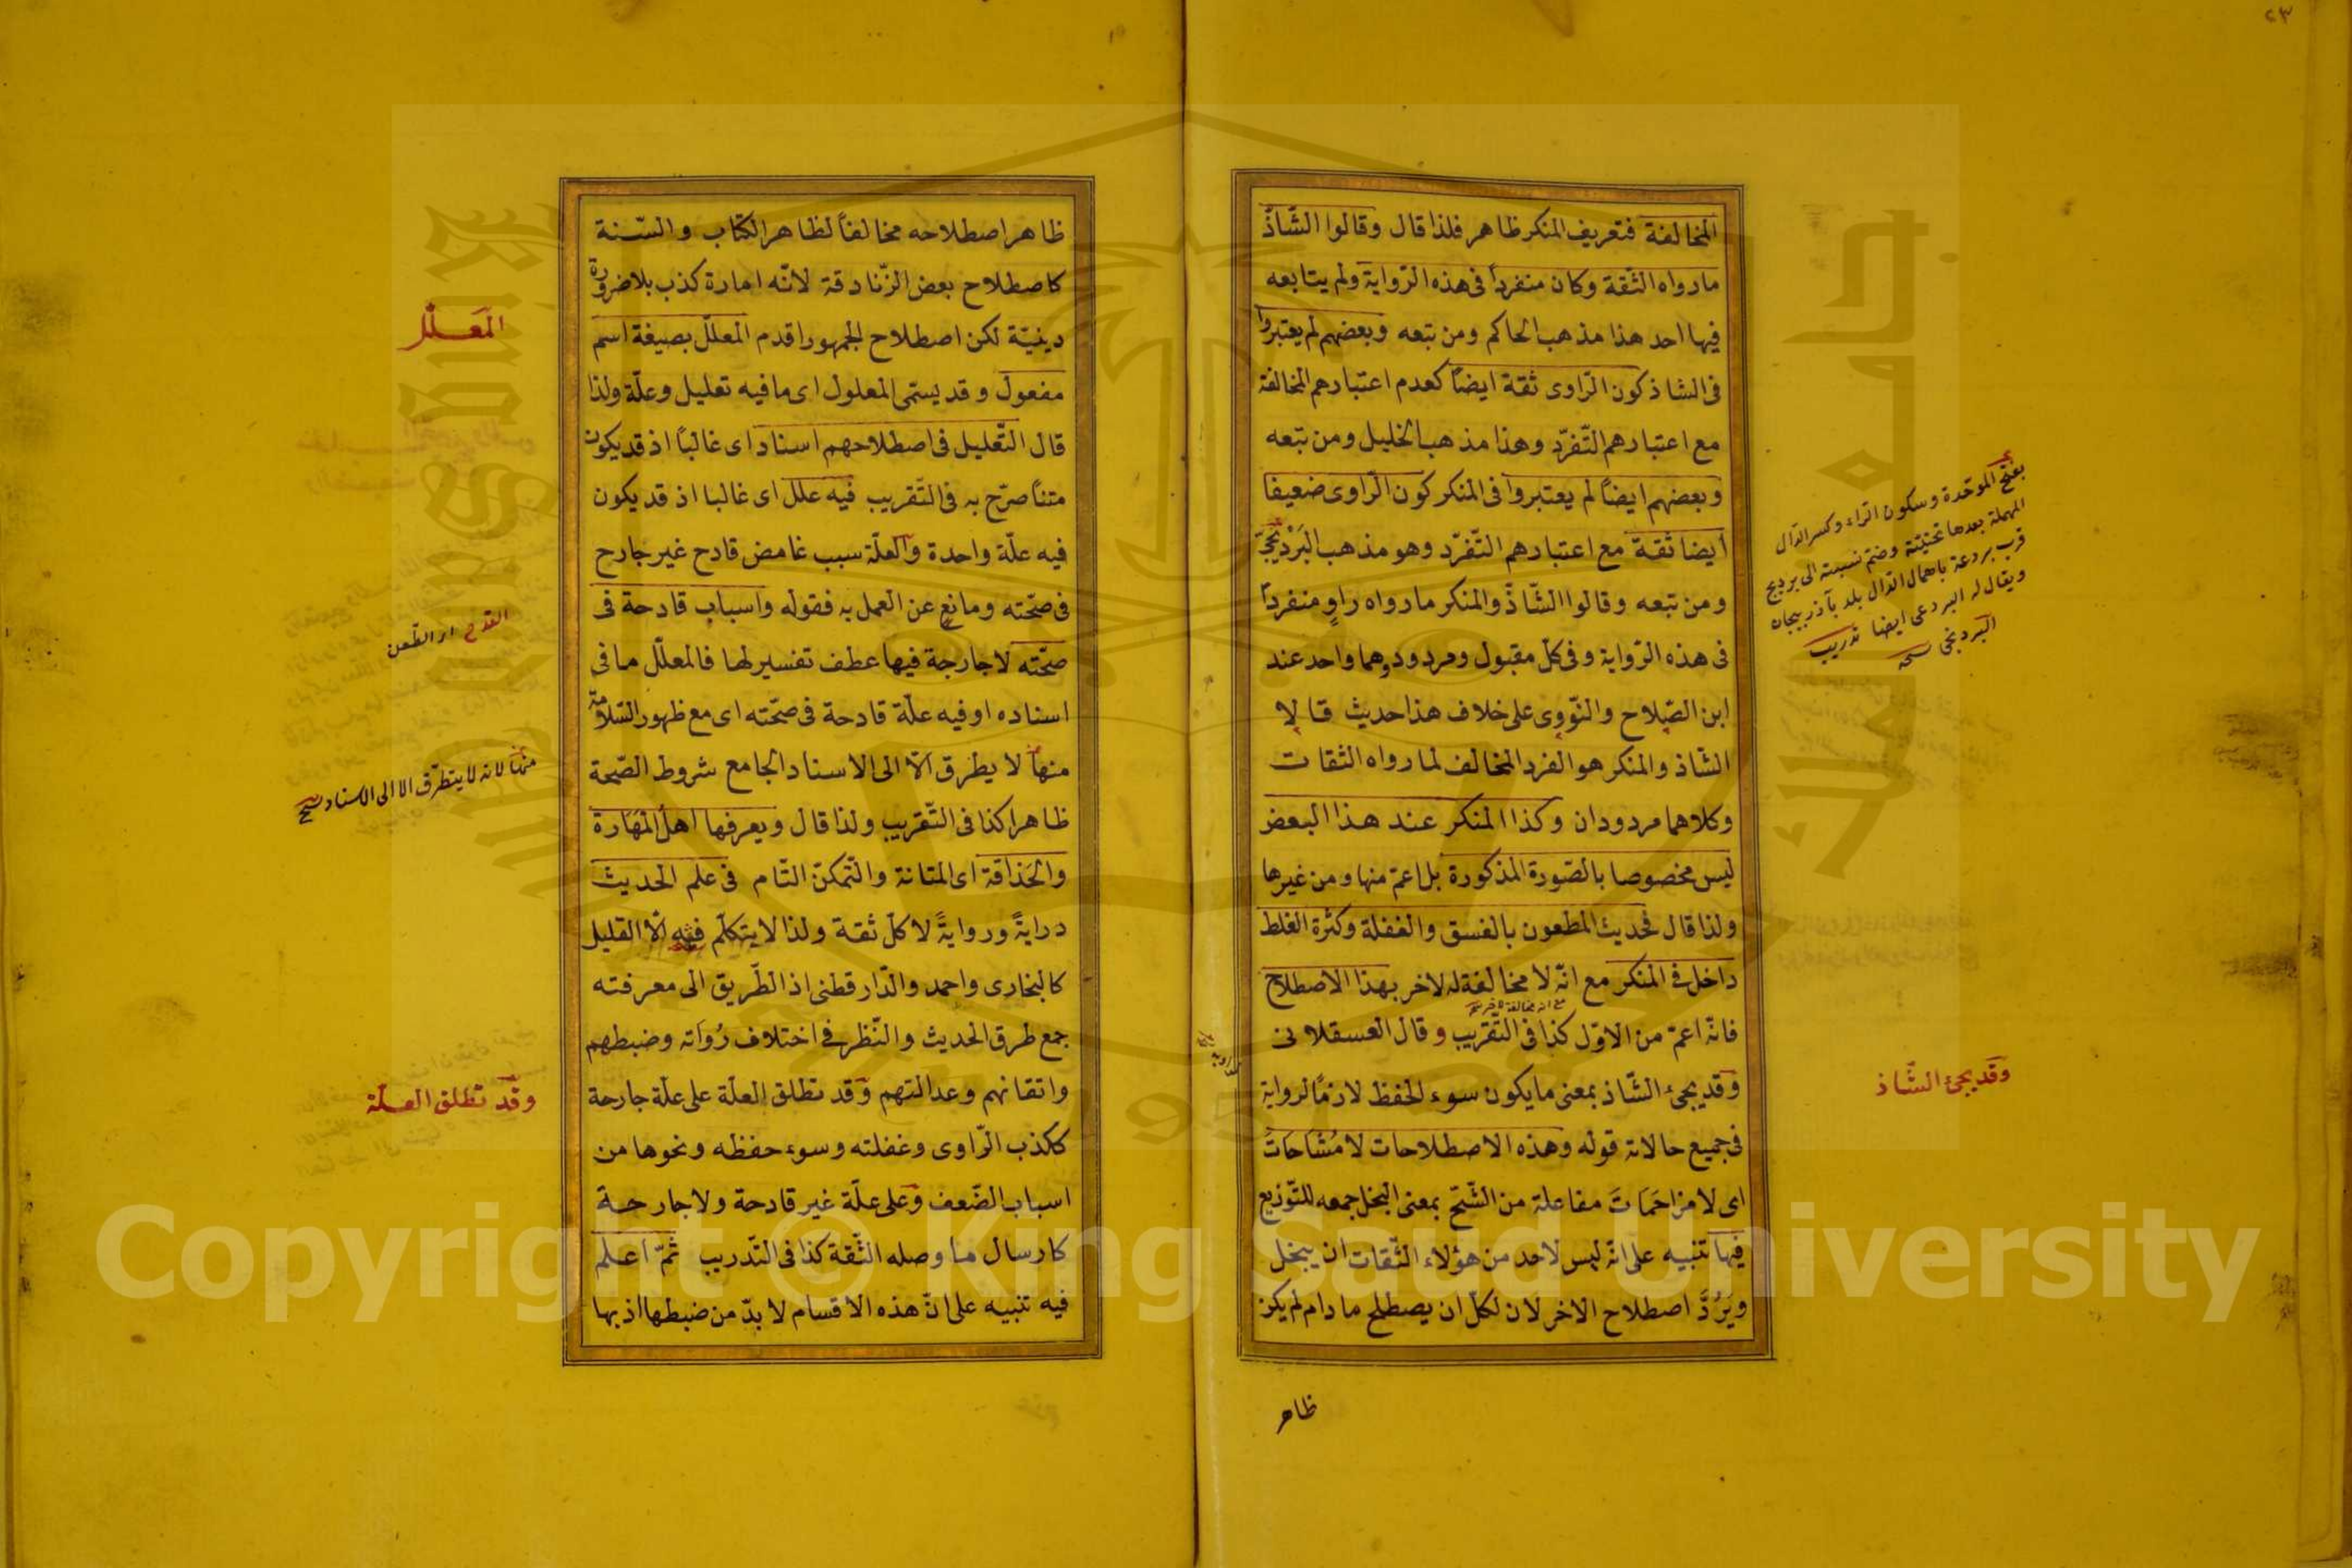 ٢٣
المخالفة فتعريف المنكر ظاهر فلذا قال وقالوا الشّاذّ
ما رواه الثّقة وكان منفرداً فى هذه الرّواية ولم يتابعه
فيها احد هذا مذهب الحاكم ومن تبعه وبعضهم لم يعتبروا
فى الشاذ كون الرّاوى ثقة ايضاً كعدم اعتبارهم المخالفة
مع اعتبارهم التّفرّد وهذا مذهب الخليل ومن تبعه
وبعضهم ايضاً لم يعتبروا فى المنكر كون الرّاوى ضعيفا
ايضا ثقة مع اعتبارهم التّفرّد وهو مذهب البَرْديجىّ
ومن تبعه وقالوا الشّاذّ والمنكر ما رواه راوٍ منفرداً
فى هذه الرّواية وفى كلّ مقبول ومردود وهما واحد عند
ابن الصّلاح والنّووى على خلاف هذا حديث قالا
الشّاذ والمنكر هو الفرد المخالف لما رواه الثقات
وكلاهما مردودان وكذا المنكر عند هذا البعض
ليس مخصوصا بالصّورة المذكورة بل اعمّ منها ومن غيرها
ولذا قال فحديث المطعون بالفسق والغفلة وكثرة الغلط
داخل فى المنكر مع انّه لا مخالفة له لاخر بهذا الاصطلاح
فانّه اعمّ من الاوّل كذا فى التّقريب وقال العسقلانى
وقد يجىء الشّاذ بمعنى ما يكون سوء الحفظ لازماً لرواية
فى جميع حالاته قوله وهذه الاصطلاحات لا مُشاحاتَ
اى لا مزاحَمَاتَ مفاعلة من الشّحّ بمعنى البخل جمعه للتّوزيع
فيها تنبيه على انّه ليس لاحد من هؤلاء الثّقات ان يبخل
ويَرُدَّ اصطلاح الاخر لان لكلّ ان يصطلح ما دام لم يكن
ظاهر
بفتح الموحّدة وسكون الراء وكسر الدّال
المهملة بعدها تحتيّة وضمّ نسبته الى برديج
قرب بردعة باهمال الدّال بلد بآذربيجان
ويقال له البردعى ايضا تدريب
البرديجى نسخه
وقد يجىء الشّاذ
ظاهر اصطلاحه مخالفاً لظاهر الكتاب والسّنة
كاصطلاح بعض الزّنادقة لانّه امارة كذب بلا ضرورة
دينيّة لكن اصطلاح الجمهور اقدم المعلّل بصيغة اسم
مفعول وقد يسمّى المعلول اى ما فيه تعليل وعلّة ولذا
قال التّعليل فى اصطلاحهم اسناد اى غالباً اذ قد يكون
متناً صرّح به فى التّقريب فيه علل اى غالبا اذ قد يكون
فيه علّة واحدة والعلّة سبب غامض قادح غير جارح
فى صحّته ومانع عن العمل به فقوله واسباب قادحة فى
صحّته لا جارحة فيها عطف تفسير لها فالمعلّل ما فى
اسناده او فيه علّة قادحة فى صحّته اى مع ظهور السّلامة
منها لا يطرق الّا الى الاسناد الجامع شروط الصّحة
ظاهرا كذا فى التّقريب ولذا قال ويعرفها اهل المَهَارة
والحَذاقة اى المتانة والتّمكّن التّام فى علم الحديث
درايةً وروايةً لا كلّ ثقة ولذا لا يتكلّم فيه الّا القليل
كالبخارى واحمد والدّارقطنى اذ الطّريق الى معرفته
جمع طرق الحديث والنّظر فى اختلاف رُواته وضبطهم
واتقانهم وعدالتهم وقد تطلق العلّة على علّة جارحة
ككذب الرّاوى وغفلته وسوء حفظه ونحوها من
اسباب الضّعف وعلى علّة غير قادحة ولا جارحة
كارسال ما وصله الثّقة كذا فى التّدريب ثمّ اعلم
فيه تنبيه على انّ هذه الاقسام لا بدّ من ضبطها اذ بها
المعَلّل
القدح اى الطّعن
منها لانه لا يتطرّق الا الى الاسناد نسخ
وقد تطلق العلّة
Copyright © King Saud University
1957